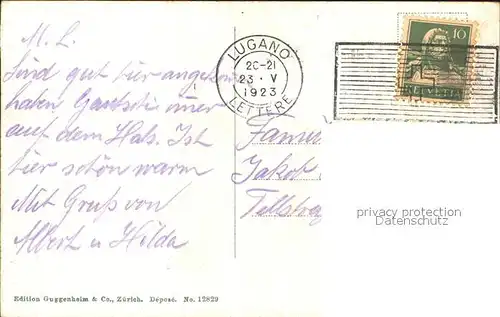 M. L.
Sind gut hier angekom
haben
auf dem Hals. Ist
hier schön warm
Mit Gruß von
Albert u Hilda
LUGANO
20-21
23 · V
1923
LETTERE
10
HELVETIA
Jakob
privacy protection
Datenschutz
Edition Guggenheim & Co., Zürich. Déposé. No. 12829